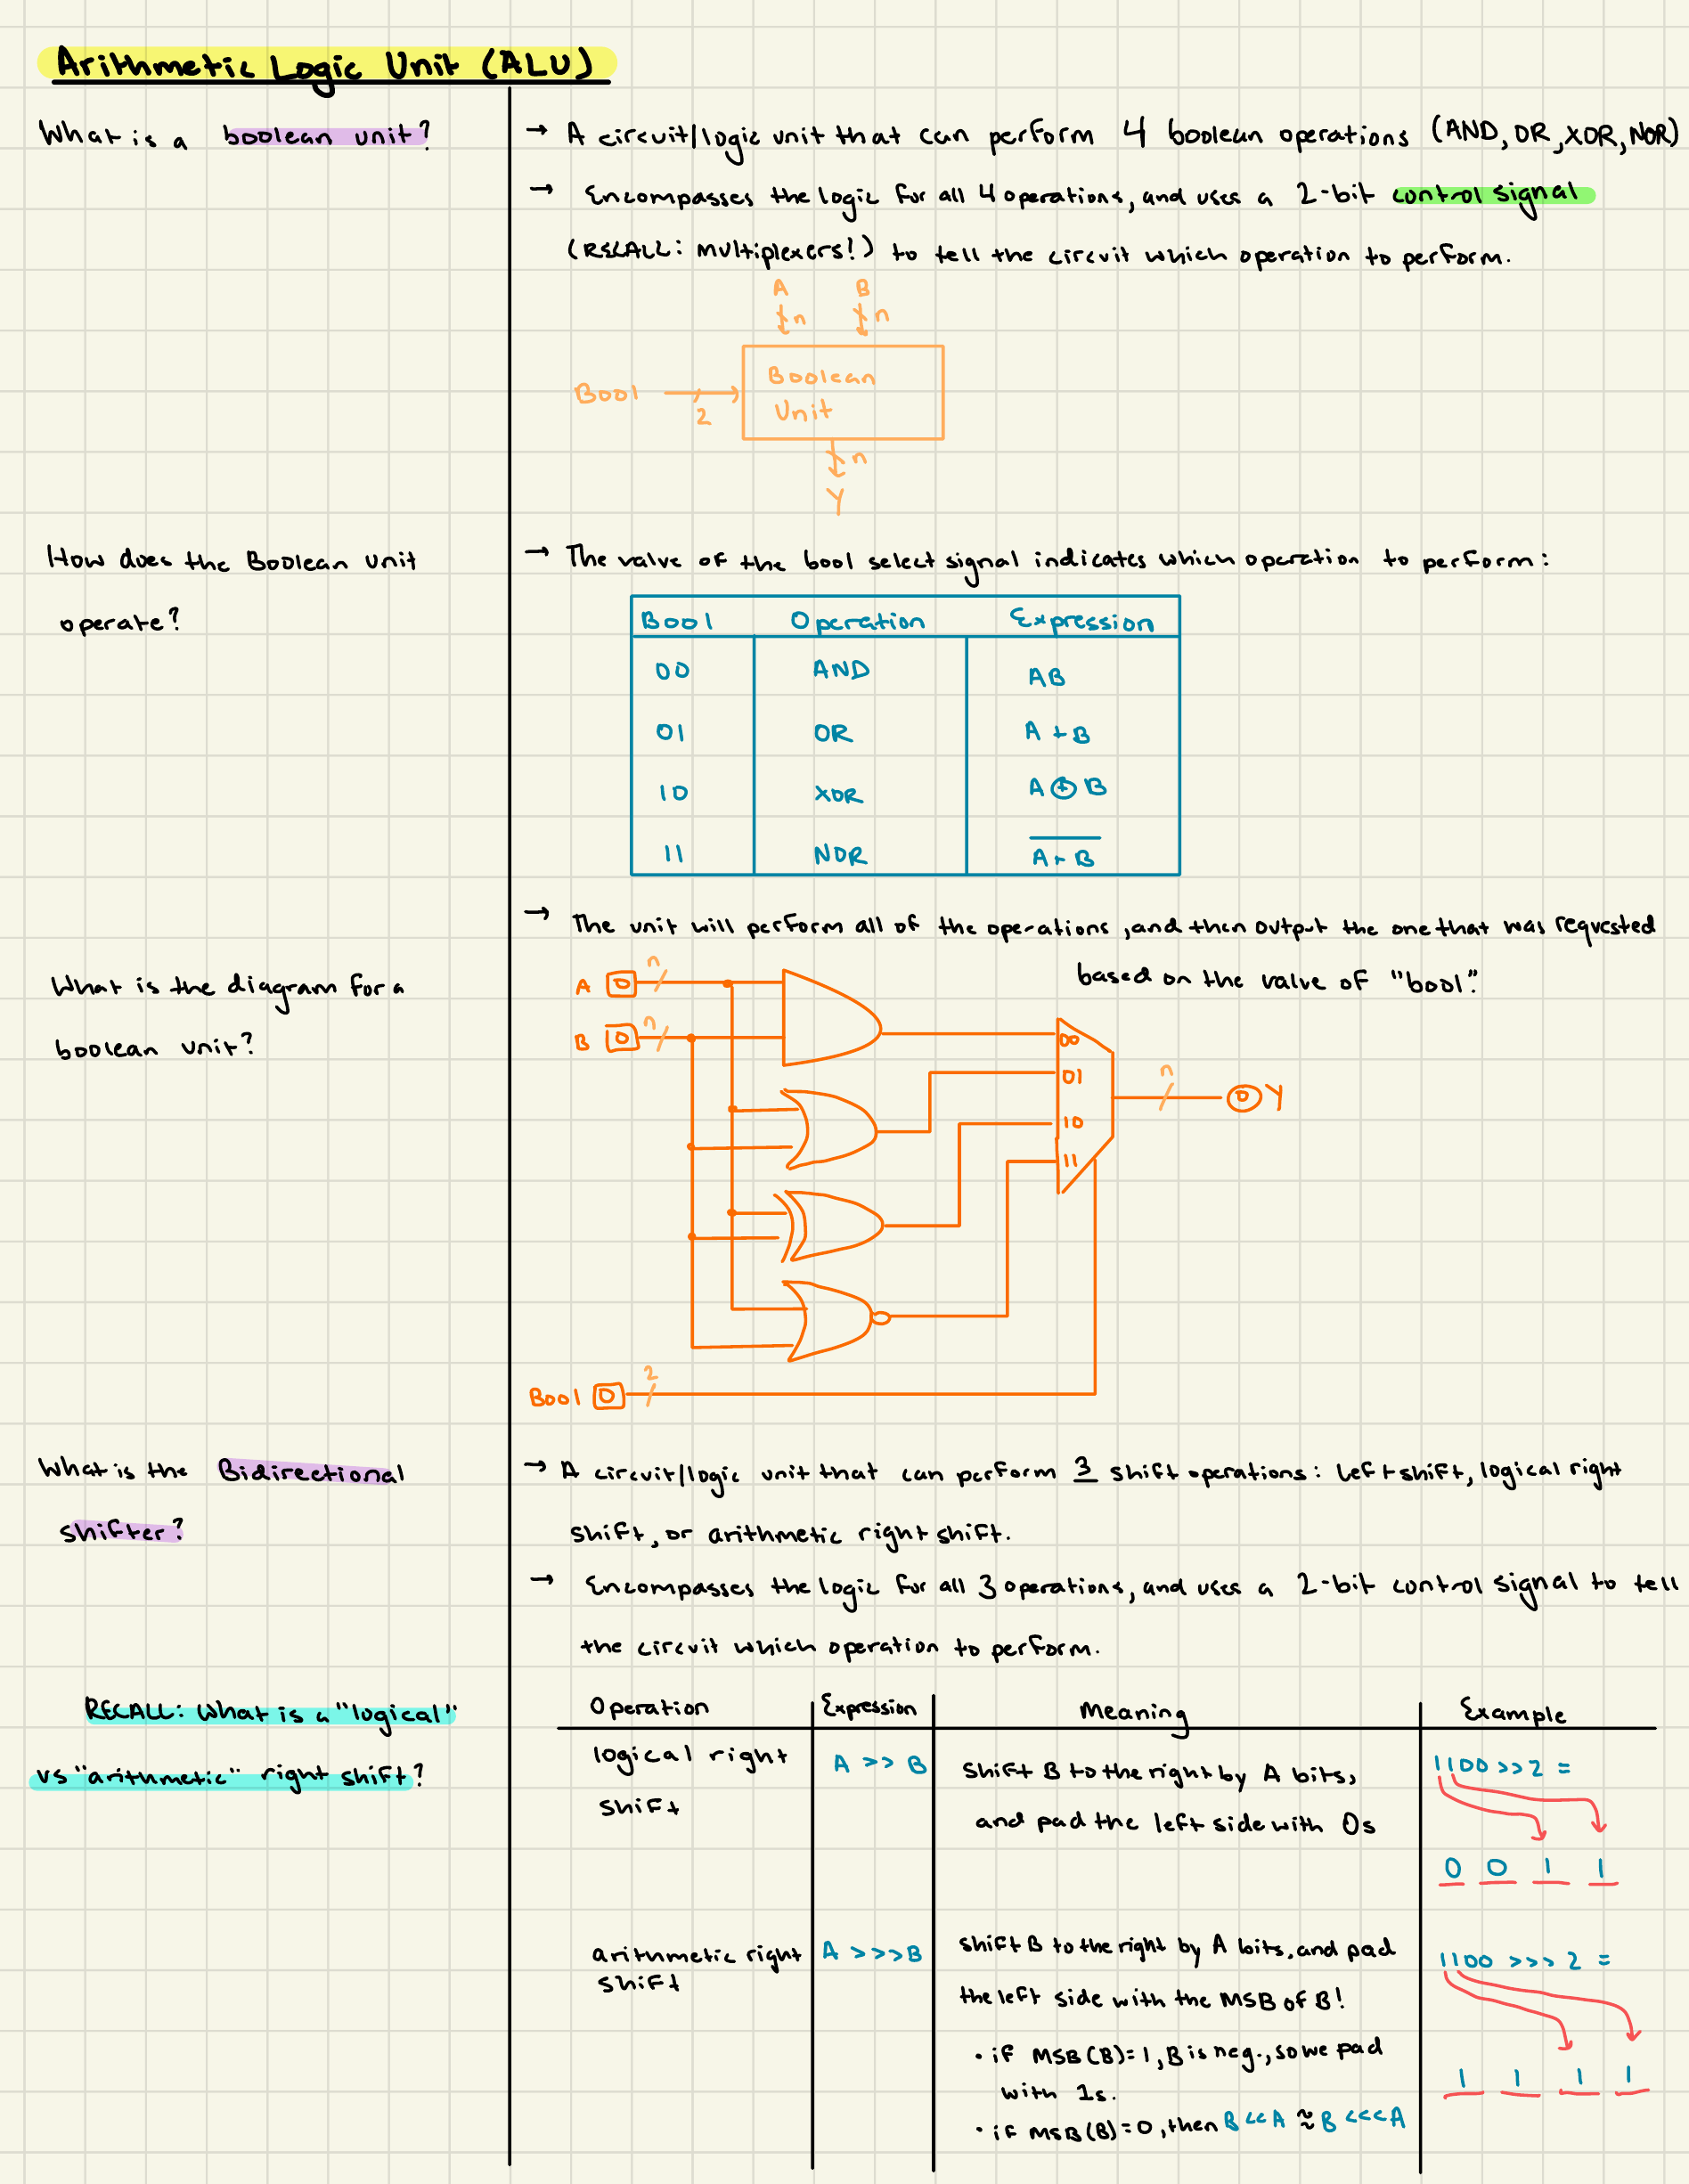 Arithmetic Logic Unit (ALU)
What is a boolean unit?
→ A circuit/logic unit that can perform 4 boolean operations (AND, OR, XOR, NOR)
→ Encompasses the logic for all 4 operations, and uses a 2-bit control signal
(RECALL: Multiplexers!) to tell the circuit which operation to perform.
A B
n n
Bool
2
Boolean
Unit
n
Y
How does the Boolean unit
operate?
→ The value of the bool select signal indicates which operation to perform:
Bool Operation Expression
00 AND AB
01 OR A + B
10 XOR A ⊕ B
11 NOR A̅ ̅+̅ ̅B̅
→ The unit will perform all of the operations, and then output the one that was requested
based on the value of "bool".
What is the diagram for a
boolean unit?
A 0 n
B 0 n
00
01
10
11
n
0 Y
Bool 0 2
What is the Bidirectional
shifter?
→ A circuit/logic unit that can perform 3 shift operations: left shift, logical right
shift, or arithmetic right shift.
→ Encompasses the logic for all 3 operations, and uses a 2-bit control signal to tell
the circuit which operation to perform.
RECALL: What is a "logical"
vs "arithmetic" right shift?
Operation Expression Meaning Example
logical right
shift
A >> B
shift B to the right by A bits,
and pad the left side with 0s
1100 >> 2 =
0 0 1 1
arithmetic right
shift
A >>> B
shift B to the right by A bits, and pad
the left side with the MSB of B!
• if MSB(B)=1, B is neg., so we pad
with 1s.
• if MSB(B)=0, then B << A ≈ B <<< A
1100 >>> 2 =
1 1 1 1